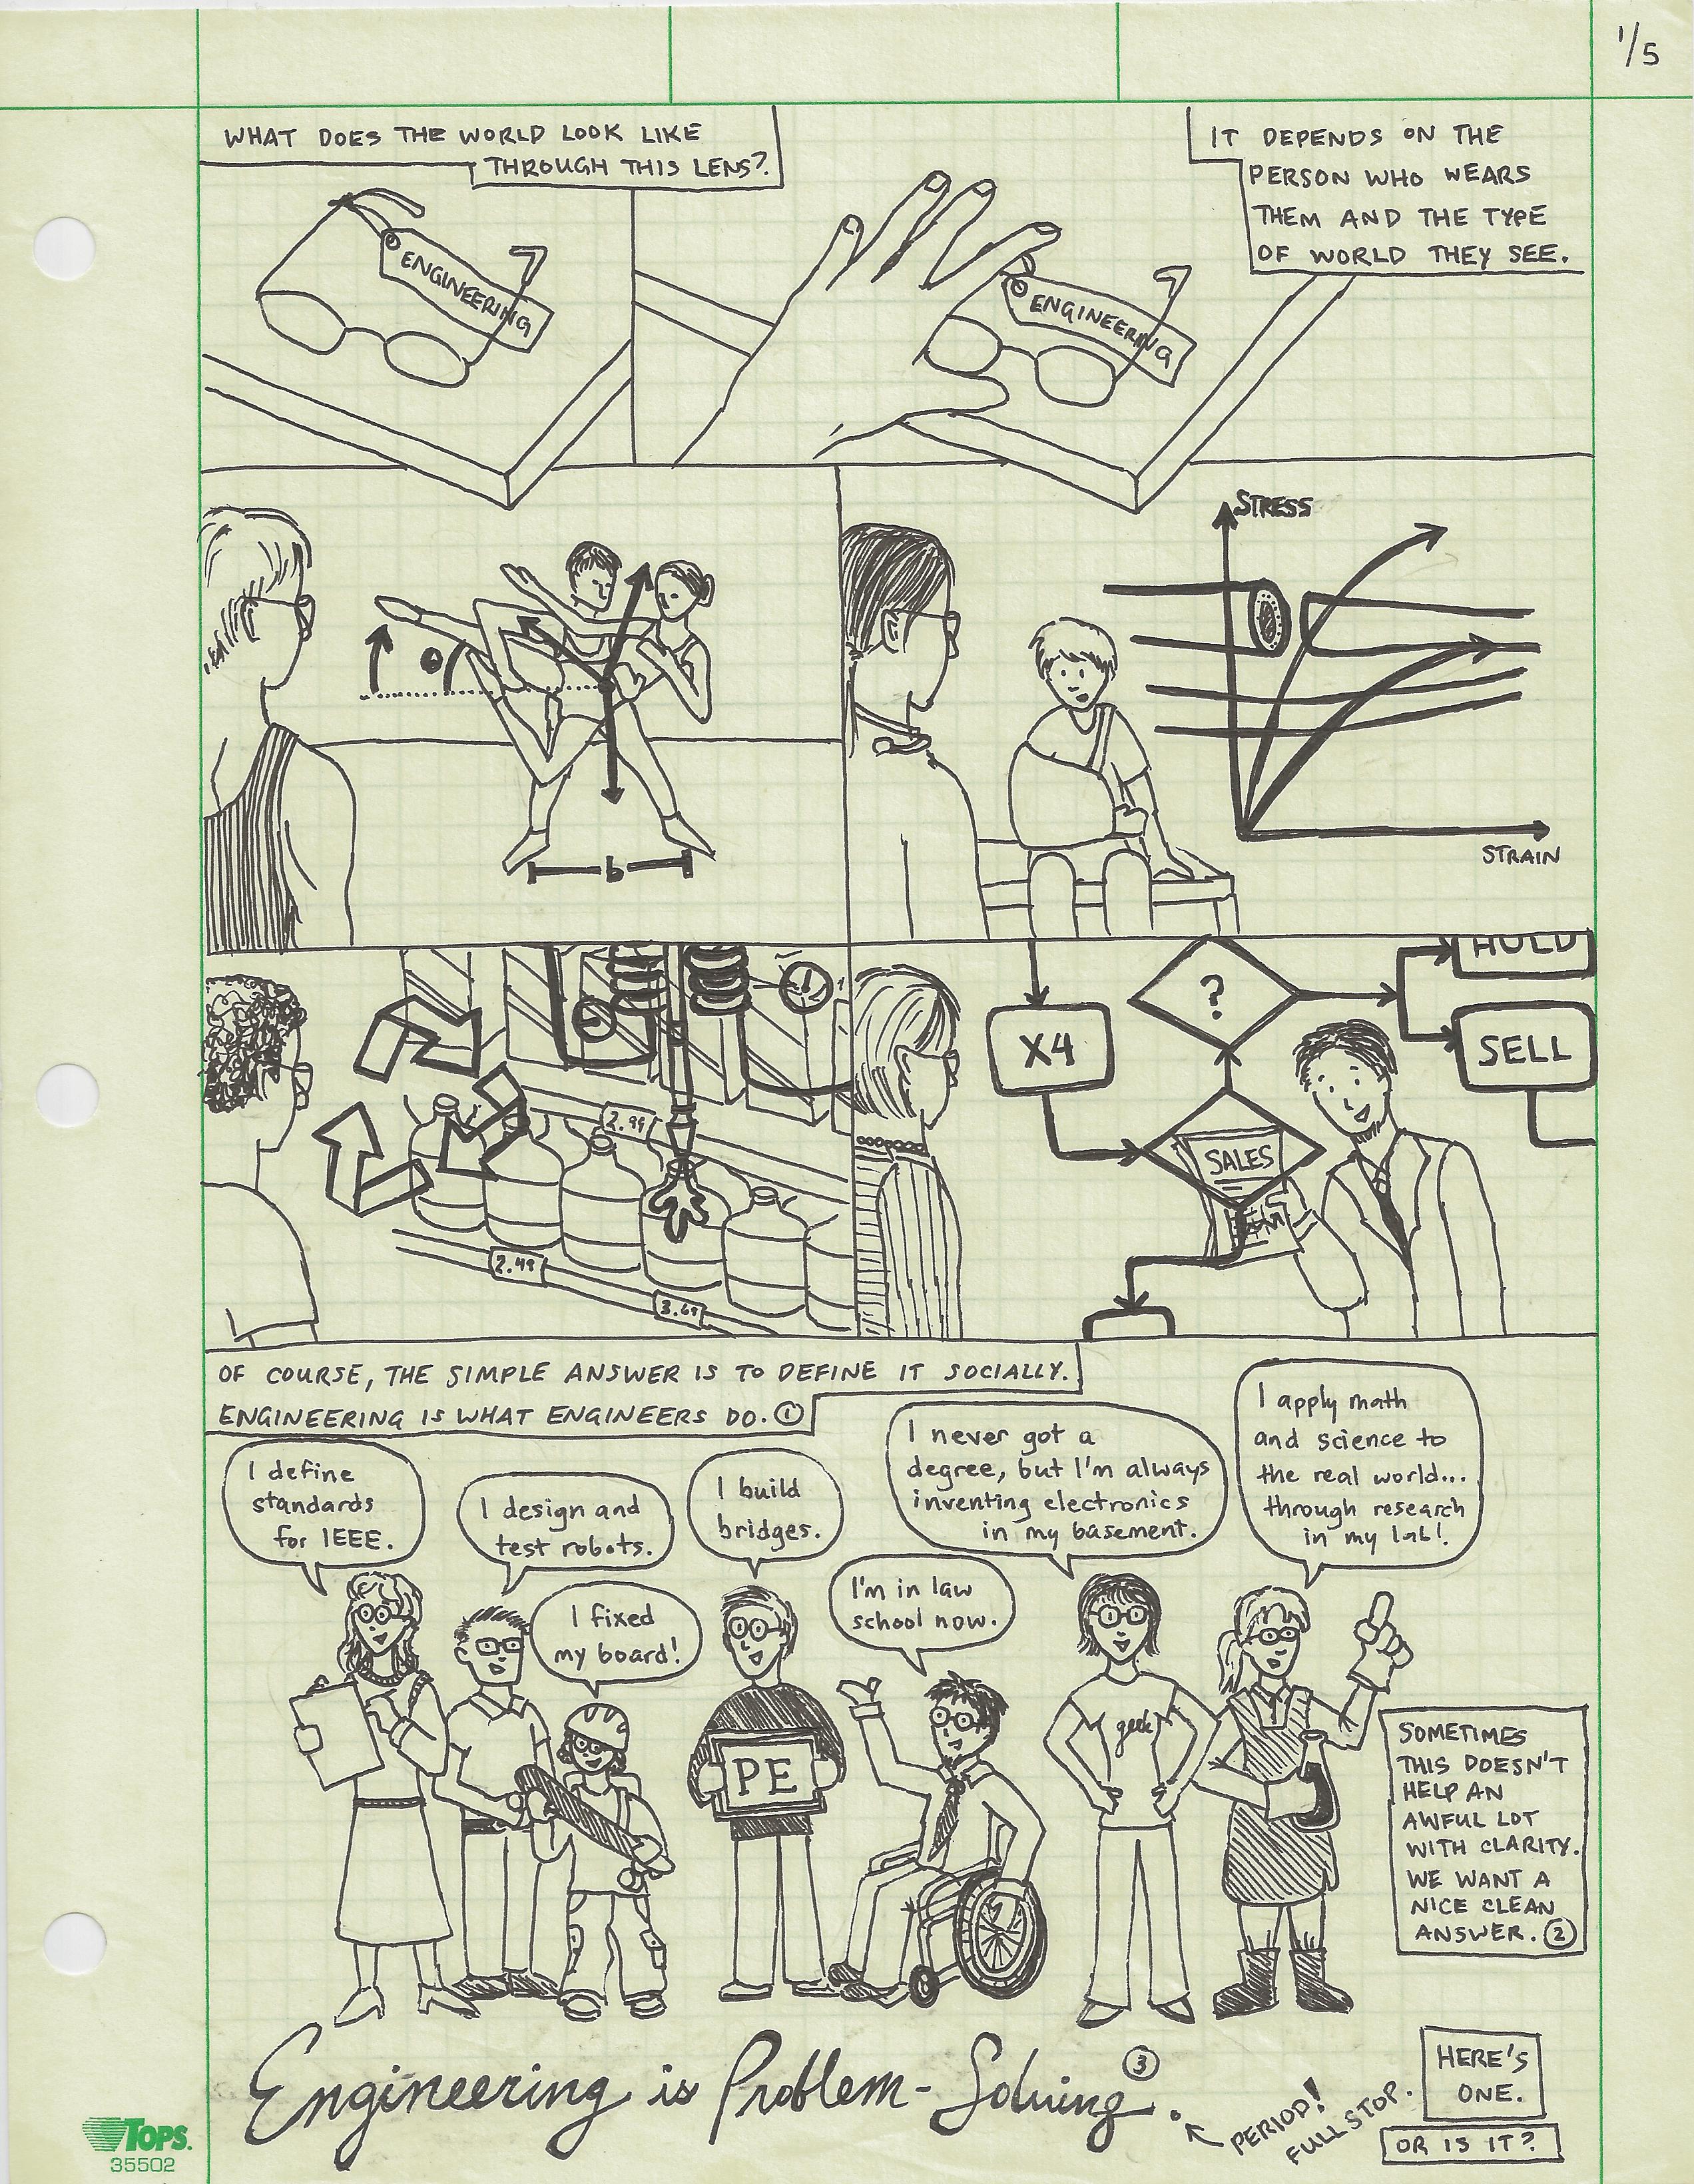 1/5
WHAT DOES THE WORLD LOOK LIKE
THROUGH THIS LENS?
IT DEPENDS ON THE
PERSON WHO WEARS
THEM AND THE TYPE
OF WORLD THEY SEE.
ENGINEERING
ENGINEERING
b
STRESS
STRAIN
2.99
2.49
3.69
X4
?
HOLD
SELL
SALES
OF COURSE, THE SIMPLE ANSWER IS TO DEFINE IT SOCIALLY.
ENGINEERING IS WHAT ENGINEERS DO. ①
I define
standards
for IEEE.
I design and
test robots.
I fixed
my board!
I build
bridges.
I'm in law
school now.
I never got a
degree, but I'm always
inventing electronics
in my basement.
I apply math
and science to
the real world...
through research
in my lab!
PE
geek
SOMETIMES
THIS DOESN'T
HELP AN
AWFUL LOT
WITH CLARITY.
WE WANT A
NICE CLEAN
ANSWER. ②
Engineering is Problem-Solving ③.
PERIOD!
FULL STOP.
HERE'S
ONE.
OR IS IT?
TOPS.
35502